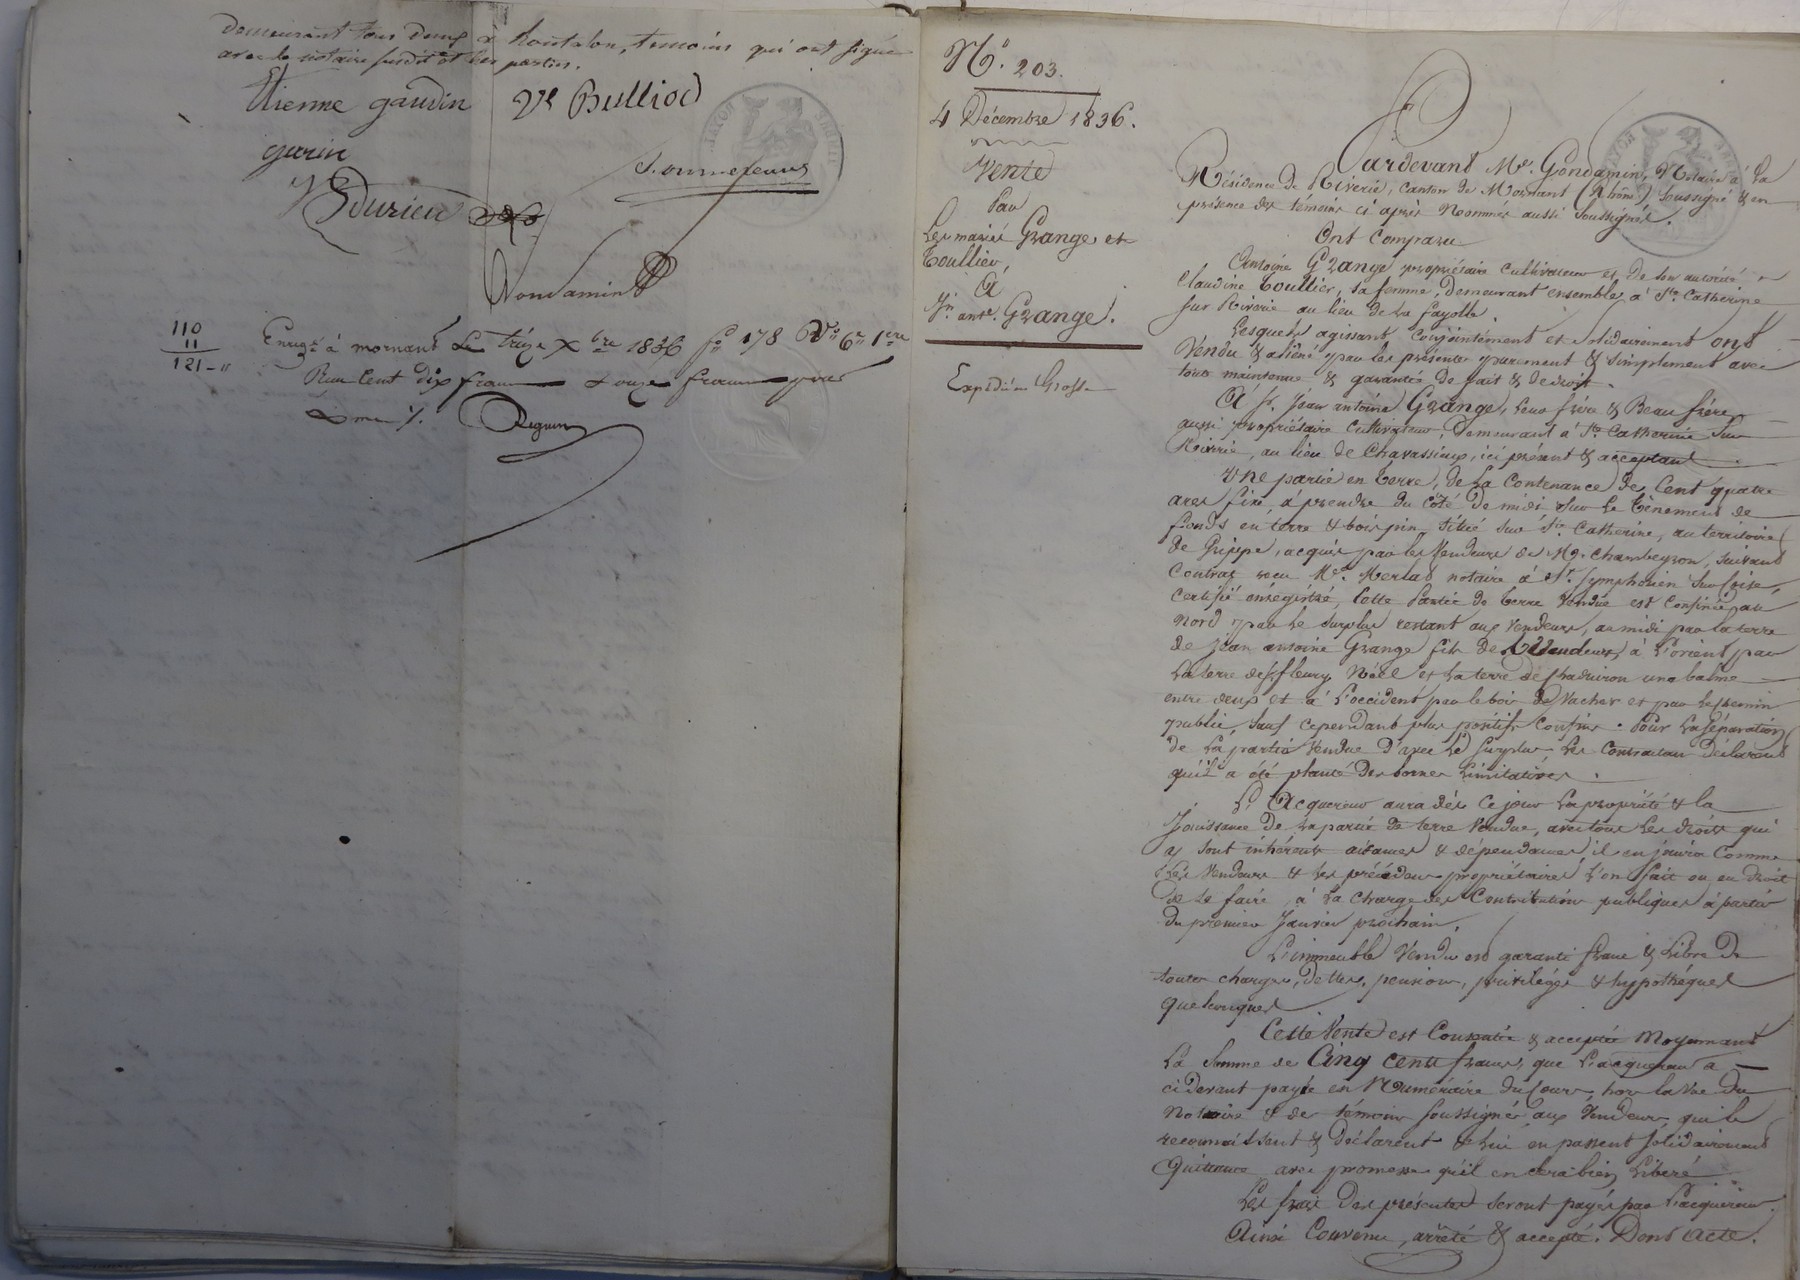 demeurant tous deux à hontalon, temoins qui ont signé
avec le notaire susdit et les parties.
Etienne gaudin Ve Bulliod
garin
Durieu
Gondamin
110
11
121 - "
Enregé à mornant Le treize Xbre 1836 fo 178 Vo Cer 1ere
Reçu Cent dix francs & onze francs pour
Dme %.
No. 203.
4 Décembre 1836.
Vente
Par
Les mariés Grange et
Toullieu,
A
Jn. ante. Grange.
Expédiée Grosse
Pardevant Me. Gondamin, Notaire à la
Résidence de Riverie, canton de Mornant (Rhône) Soussigné & en
présence des témoins ci après Nommés aussi Soussignés.
Ont Comparu
Antoine Grange propriétaire Cultivateur et de son autorité
Claudine Toullieu, sa femme, demeurant ensemble à Ste. Catherine
sur Riverie au lieu de la fayolle.
Lesquels agissant Conjointement et Solidairement ont
Vendu & aliéné par les présentes purement & Simplement avec
toute maintenue & garantie de fait & de droit.
A Sr. Jean antoine Grange, leur frère & Beau frère,
aussi propriétaire Cultivateur, demeurant à Ste Catherine Sur
Riverie, au lieu de Chavassieux, ici présent & acceptant.
Une partie en Terre, de la Contenance de Cent quatre
ares fixe, à prendre du côté de midi Sur le Tènement de
fonds en terre & bois pin, situé Sur Ste. Catherine, au territoire
de Pipipe, acquis par les Vendeurs de Me. Chambeyron, suivant
Contrat reçu Me. Merlat notaire à St. Symphorien Sur Coise,
certifié enregistré, Cette Partie de terre Vendue est Confinée au
Nord par le Surplus restant aux Vendeurs, au midi par la terre
de Jean antoine Grange fils de Vendeurs, à L'orient par
la terre de fleury Noèl et la terre de Chadviron une balme
entre deux et à L'occident par le bois de Vacher et par Le chemin
public, Sauf cependant plus positifs Confins. Pour La Séparation
de La partie Vendue D'avec Le Surplus Les Contractans déclarent
qu'il a été planté Des bornes Limitatives.
L'Acquereur aura dès ce jour La propriété & la
Jouissance De La partie de terre Vendue, avec tous Les droits qui
y sont inhérents aisances & dépendances il en jouira Comme
Les Vendeurs & Les précédens propriétaires L'on fait ou eu droit
de Le faire, à La Charge des Contributions publiques à partir
du premier Janvier prochain.
L'immeuble Vendu est garanti franc & Libre De
toutes charges, dettes, pension, privilèges & hypothèques
quelconques
Cette Vente est Consentie & acceptée Moyennant
La Somme de Cinq cents francs, que L'acquereur a
ci Devant payée en Numéraire du Cours, hors la Vue du
Notaire & des témoins Soussignés aux Vendeurs qui le
reconnaissent & Déclarent & lui en passent Solidairement
Quittance avec promesse qu'il en sera bien Libéré
Les frais des présentes seront payés par L'acquereur.
Ainsi Convenu, arrêté & accepté. Dont Acte.